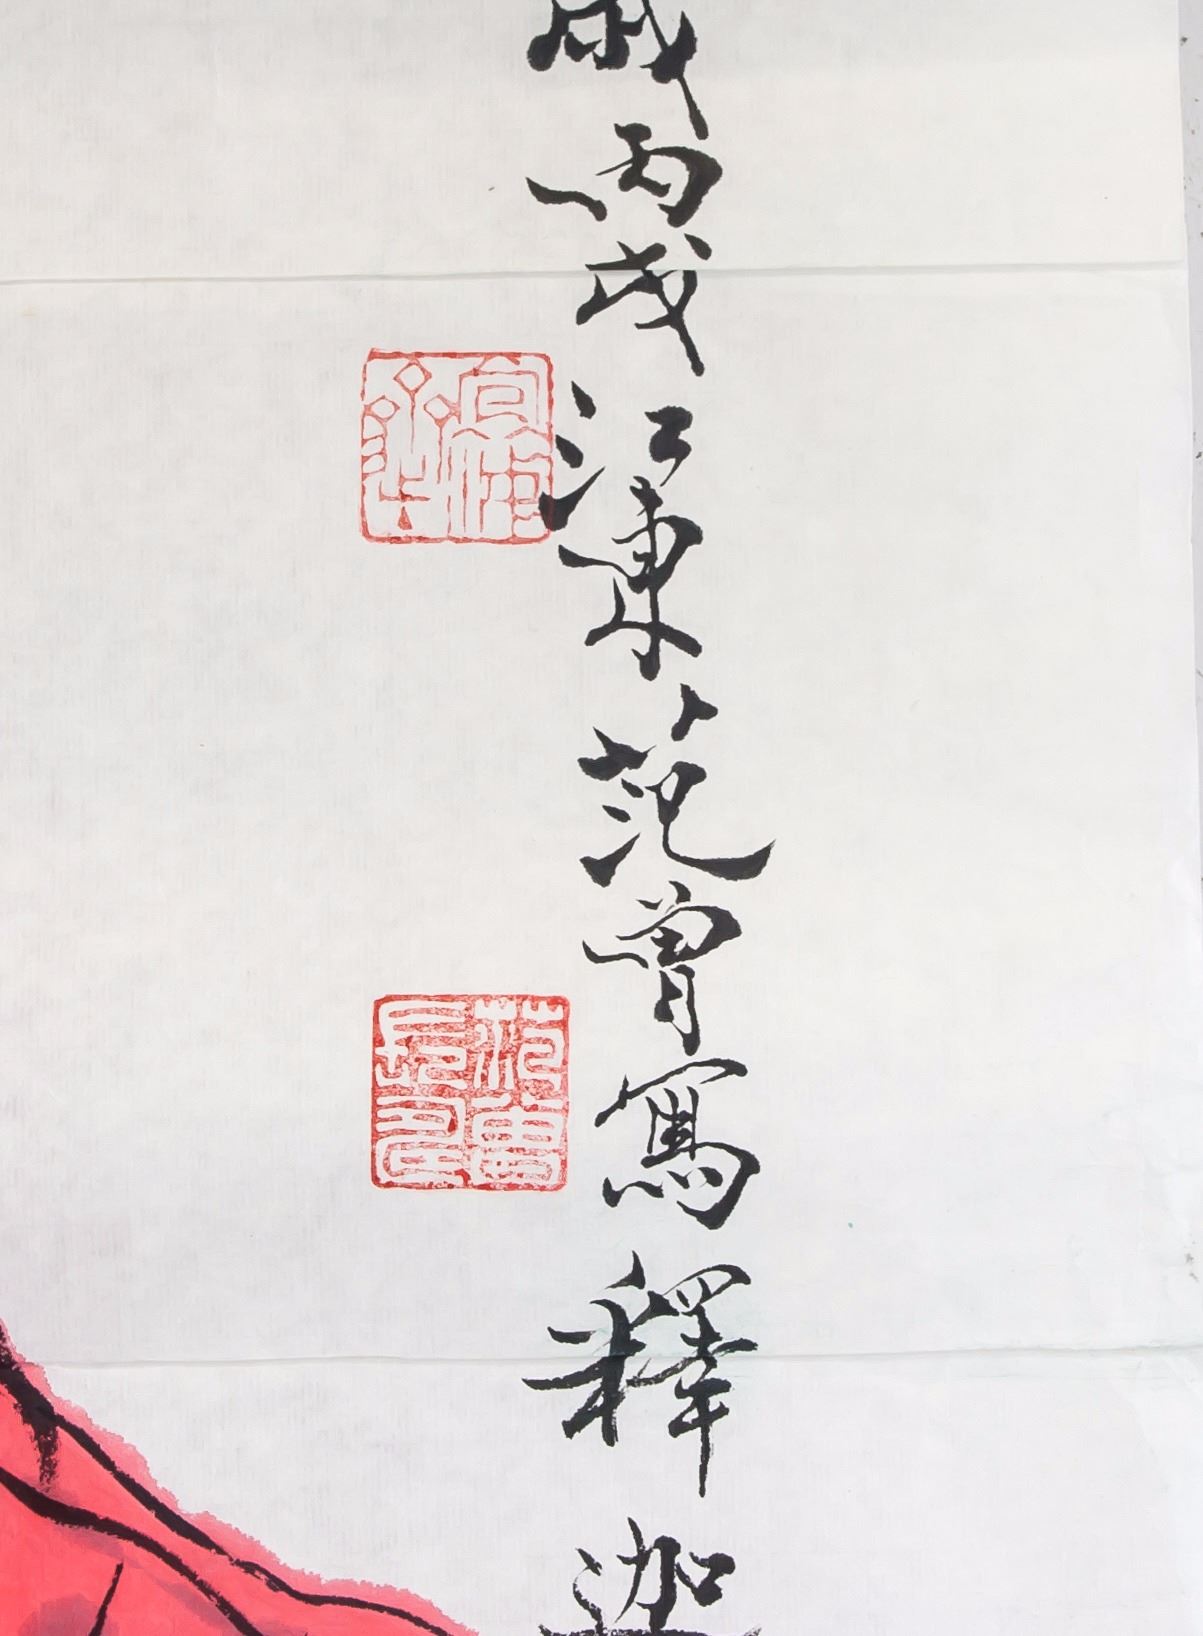 歲丙戌江東范曾寫釋迦
范曾長年